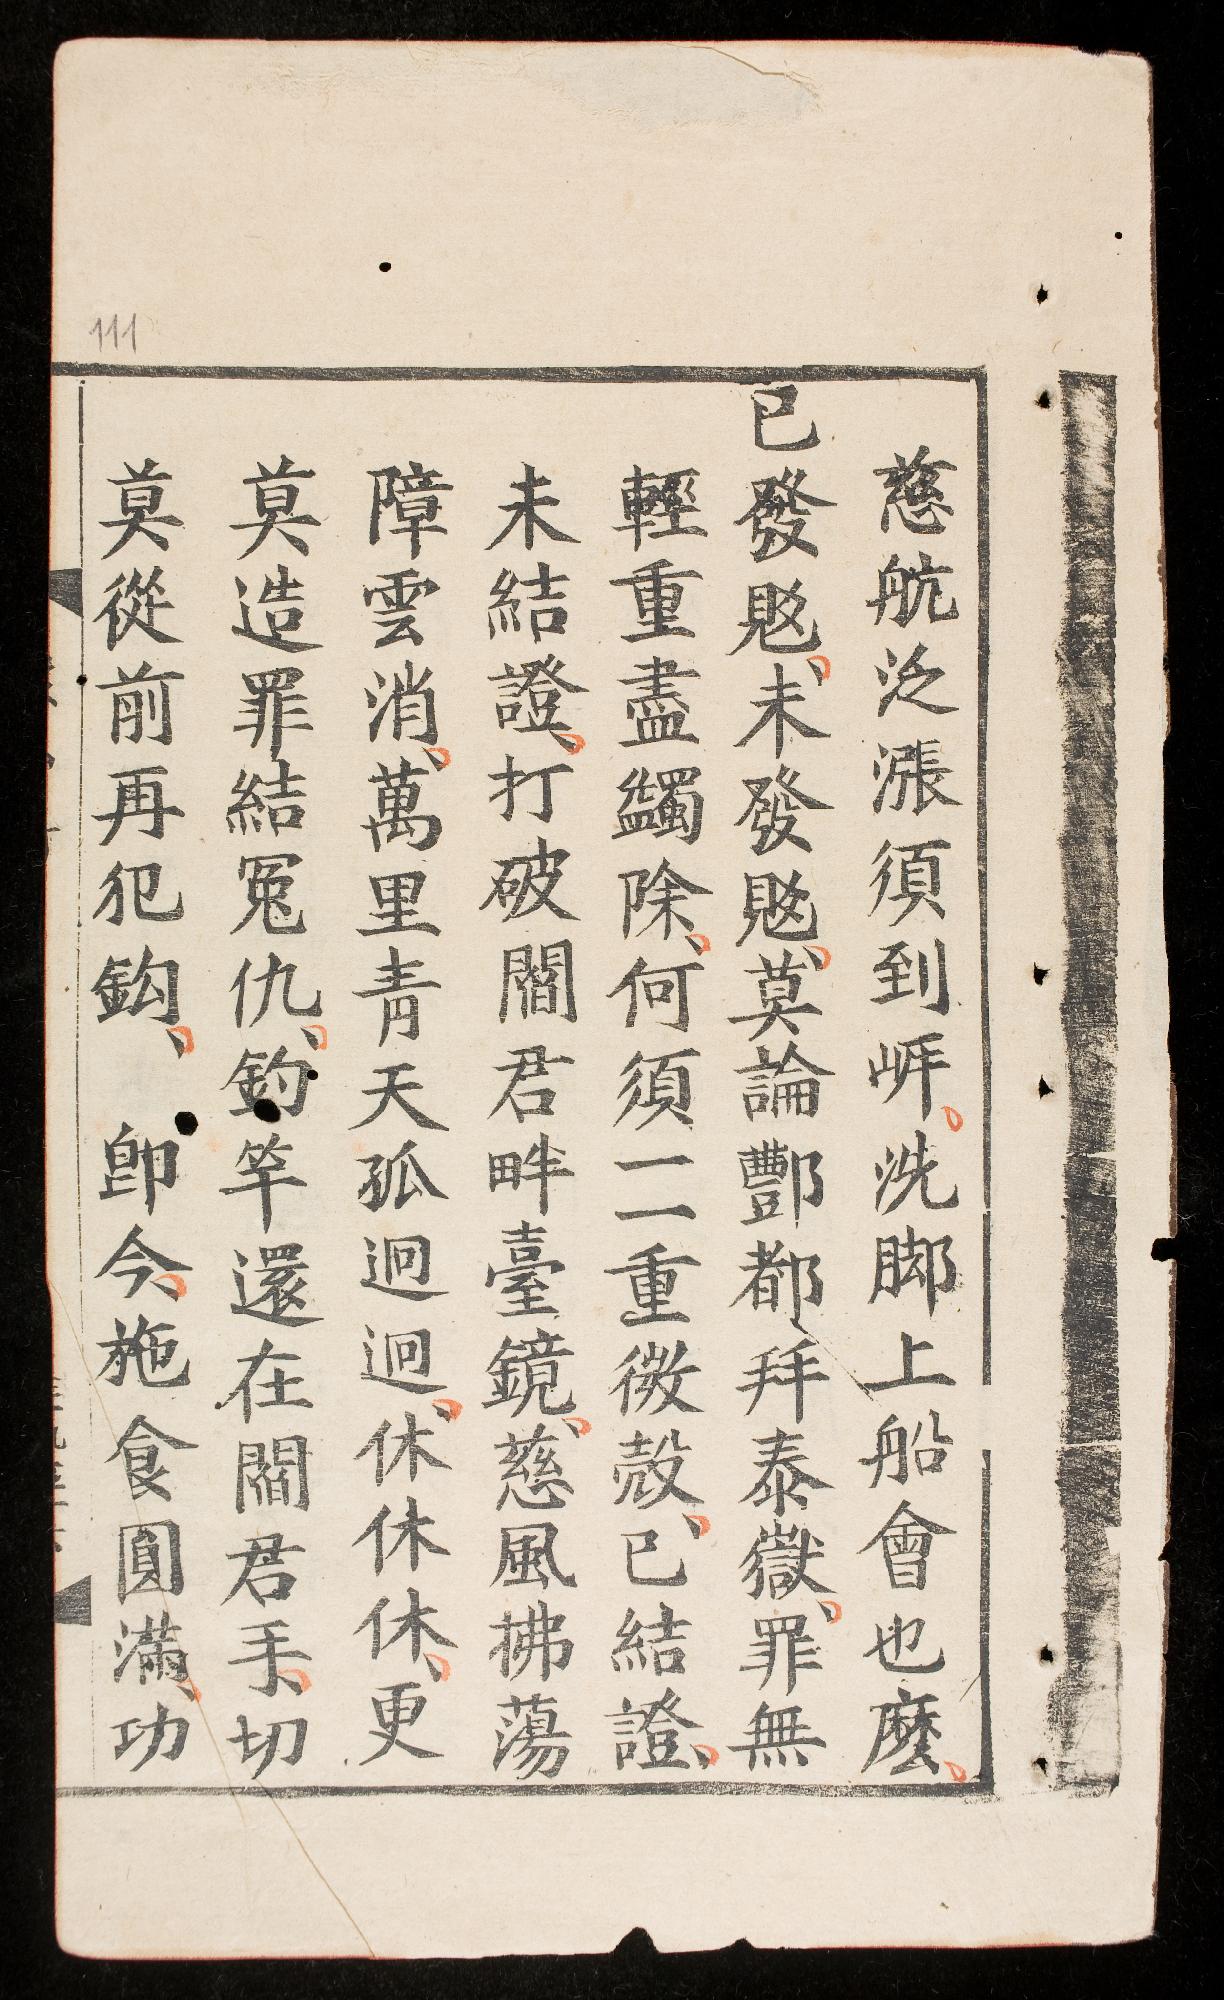 111
慈航泛漲須到岸洗脚上船會也麽
已發覺、未發覺、莫論酆都拜泰嶽、罪無
輕重盡蠲除、何須一一重微殼、已結證、
未結證、打破閻君畔臺鏡、慈風拂蕩
障雲消、萬里青天孤迥迥、休休休、更
莫造罪結冤仇、釣竿還在閻君手、切
莫從前再犯鈎、即今、施食圓滿、功